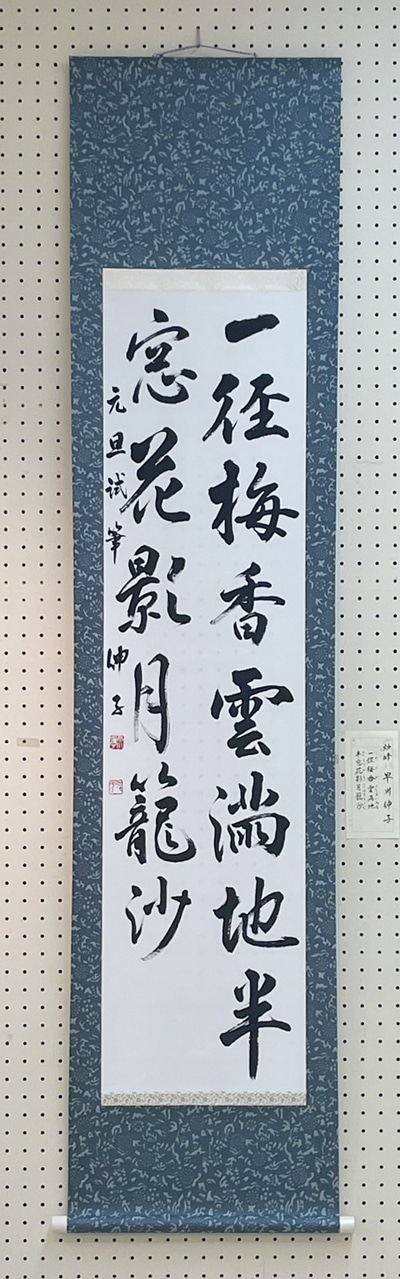 一径梅香雲満地半
窓花影月籠沙
元旦試筆 伸子
妙峰 早川伸子
一径梅香雲満地
半窓花影月籠沙